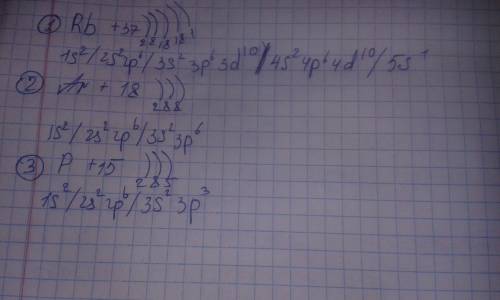 ① Rb +37 )))))
2 8 18 18 1
1s²/2s²2p⁶/3s²3p⁶3d¹⁰/4s²4p⁶4d¹⁰/5s¹
② Ar +18 )))
2 8 8
1s²/2s²2p⁶/3s²3p⁶
③ P +15 )))
2 8 5
1s²/2s²2p⁶/3s²3p³